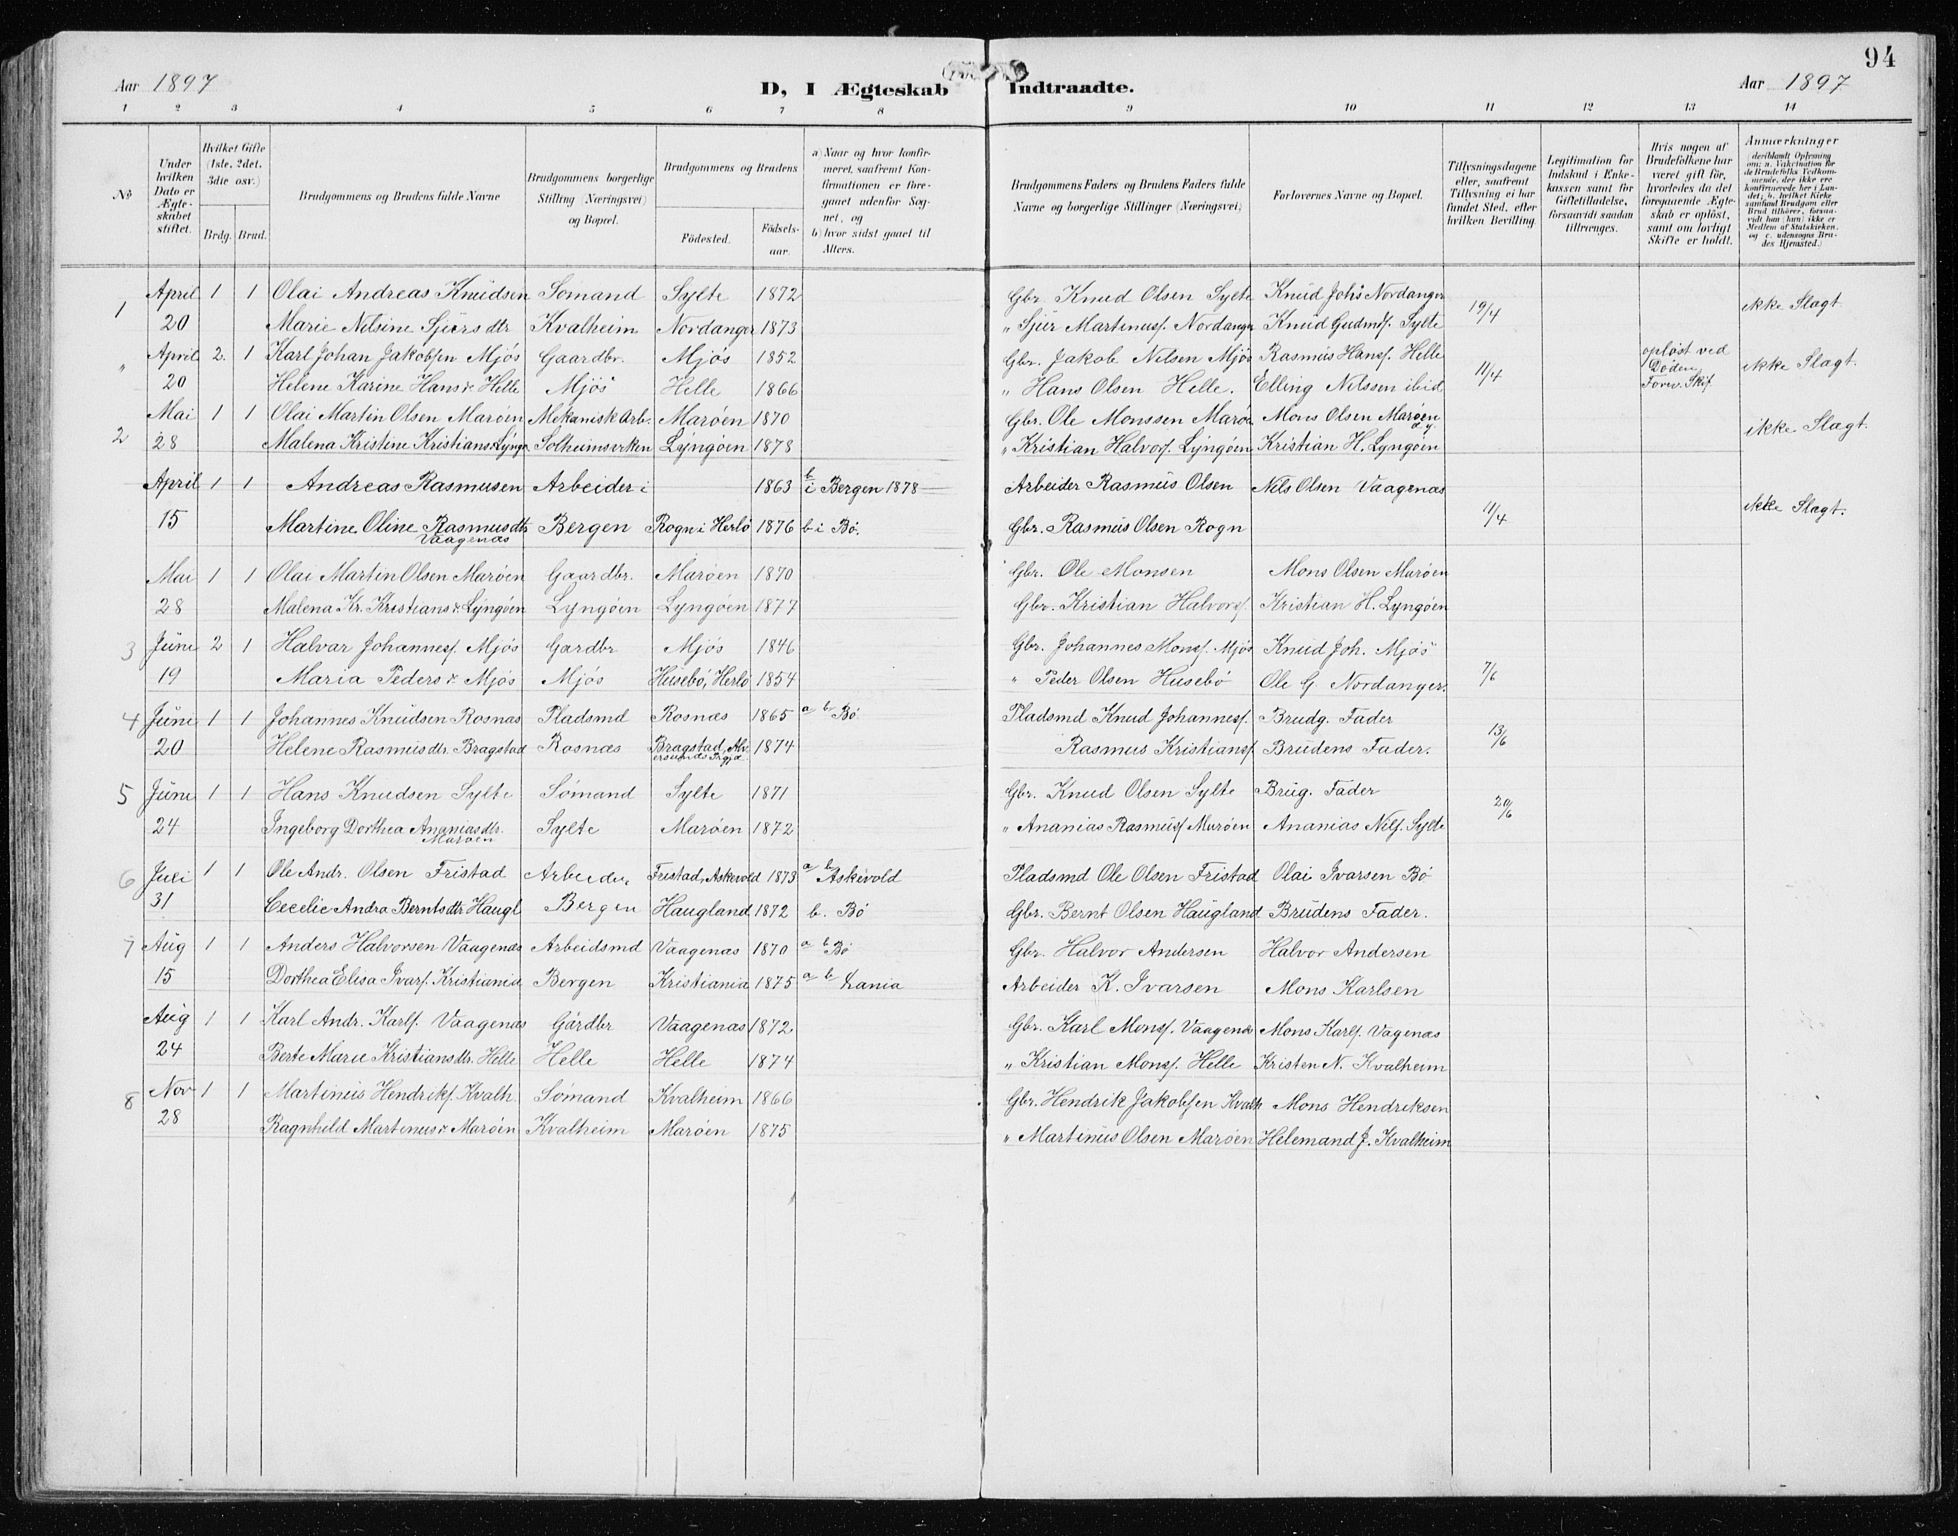 94
Aar 1897
D, I Ægteskab Indtraadte.
Aar 1897
1 2 3 4 5 6 7 8 9 10 11 12 13 14
No
Under hvilken Dato er Ægteskabet stiftet.
Hvilket Gifte (1ste, 2det, 3die osv.)
Brdg. Brud.
Brudgommens og Brudens fulde Navne
Brudgommens borgerlige Stilling (Næringsvei) og Bopæl.
Brudgommens og Brudens
Fødested.
Fødselsaar.
a) Naar og hvor konfirmeret, saafremt Konfirmationen er foregaaet udenfor Sognet, og
b) hvor sidst gaaet til Alters.
Brudgommens Faders og Brudens Faders fulde Navne og borgerlige Stillinger (Næringsvei)
Forlovernes Navne og Bopæl.
Tillysningsdagene eller, saafremt Tillysning ei har fundet Sted, efter hvilken Bevilling
Legitimation for Indskud i Enkekassen samt for Giftetilladelse, forsaavidt saadan tiltrænges.
Hvis nogen af Brudefolkene har været gift før, hvorledes da det foregaaende Ægteskab er opløst, samt om lovligt Skifte er holdt.
Anmærkninger
deriblandt Oplysning om: a. Vakcination for de Brudefolks Vedkommende, der ikke ere konfirmerede her i Landet; b. hvilket Kirkesamfund Brudgom eller Brud tilhører, forsaavidt han (hun) ikke er Medlem af Statskirken, og c. udensogns Brudes Hjemsted.)
1 April 1 1 Olai Andreas Knudsen Sømand Sylte 1872 Gbr. Knud Olsen Sylte Knud Johs Nordanger 19/4 ikke Slægt.
20 Marie Nilsine Sjursdtr Kvalheim Nordanger 1873 " Sjur Martinusf. Nordanger Knud Gudmsf. Sylte
" April 2. 1 Karl Johan Jakobsen Mjøs Gaardbr. Mjøs 1852 Gbr. Jakob Nilsen Mjøs Rasmus Hansf. Helle 11/4 opløst ved Døden Forev. Skif. ikke Slægt.
20 Helene Karine Hansd. Helle Mjøs Helle 1866 " Hans Olsen Helle. Elling Nilssen ibid
2 Mai 1 1 Olai Martin Olsen Marøen Mekanisk Arb. Marøen 1870 Gbr. Ole Monssen Marøe Mons Olsen Marøen d.y. ikke Slægt.
28 Malena Kristine Kristiansd. Lyngø Solheimsviken Lyngøen 1878 " Kristian Halvorsf. Lyngøen Kristian H. Lyngøen
April 1 1 Andreas Rasmusen Arbeider i 1863 b i Bergen 1878 Arbeider Rasmus Olsen Nils Olsen Vaagenæs 11/4 ikke Slægt.
15 Martine Oline Rasmusdtr Vaagenæs Bergen Rogn i Herlø 1876 b i Bø. Gbr. Rasmus Olsen Rogn
Mai 1 1 Olai Martin Olsen Marøen Gaardbr. Marøen 1870 Gbr. Ole Monsen Mons Olsen Marøen
28 Malena Kr. Kristiansd. Lyngøen Lyngøen Lyngøen 1877 Gbr. Kristian Halvorsf. Kristian H. Lyngøen
3 Juni 2 1 Halvar Johannesf. Mjøs Gardbr Mjøs 1846 Gbr. Johannes Monsf. Mjøs Knud Joh. Mjøs 7/6
19 Maria Pedersd. Mjøs Mjøs Husebø, Herlø 1854 " Peder Olsen Husebø Ole G. Nordanger.
4 Juni 1 1 Johannes Knudsen Rosnæs Pladsmd Rosnæs 1865 a b Bø Pladsmd Knud Johannesf. Brudg. Fader 13/6
20 Helene Rasmusdtr. Bragstad Rosnæs Bragstad, Alversunds Prgjd. 1874 Rasmus Kristiansf. Brudens Fader.
5 Juni 1 1 Hans Knudsen Sylte Sømand Sylte 1871 Gbr. Knud Olsen Sylte Brug. Fader 20/6
24 Ingeborg Dorthea Ananiasdtr. Marøen Sylte Marøen 1872 " Ananias Rasmusf Marøen Ananias Nilsf. Sylte
6 Juli 1 1 Ole Andr. Olsen Fristad Arbeider Fristad, Askevold 1873 a b Askevold Pladsmd Ole Olsen Fristad Olai Ivarsen Bø
31 Cecelie Andra Berntsdtr Haugl Bergen Haugland 1872 b. Bø Gbr. Bernt Olsen Haugland Brudens Fader.
7 Aug 1 1 Anders Halvorsen Vaagenæs Arbeidsmd Vaagenæs 1870 a b Bø Gbr. Halvor Andersen Halvor Andersen
15 Dorthea Elisa Ivarsf. Kristiania Bergen Kristiania 1875 a b Xania Arbeider K. Ivarsen Mons Karlsen
Aug 1 1 Karl Andr. Karlsf. Vaagenæs Gårdbr Vaagenæs 1872 Gbr. Karl Monsf. Vaagenæs Mons Karlsf. Vagenæs
24 Berte Marie Kristiansdtr. Helle Helle Helle 1874 " Kristian Monsf. Helle Kristen N. Kvalheim
8 Nov 1 1 Martinus Hendriksf. Kvalh. Sømand Kvalheim 1866 Gbr. Hendrik Jakobsen Kvalh Mons Hendriksen
28 Ragnhild Martinusd. Marøen Kvalheim Marøen 1875 " Martinus Olsen Marøen Helemand J. Kvalheim